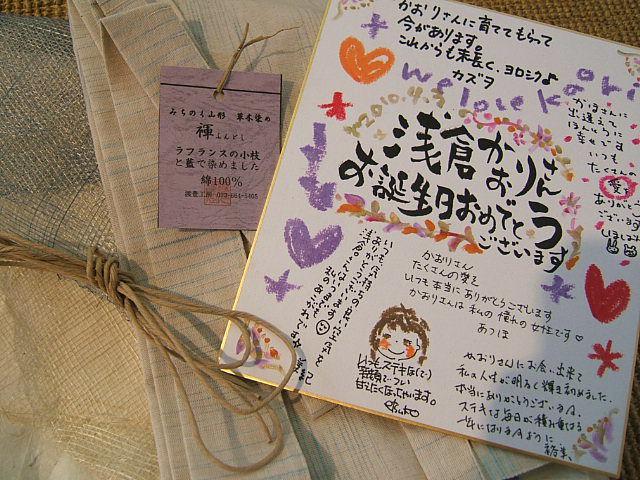 みちのく山形 草木染め
褌 ふんどし
ラフランスの小枝
と藍で染めました
綿100%
かおりさんに育ててもらって
今があります。
これからも末長く、ヨロシク♪
カズヲ
we love kaori
2010.4.3
浅倉かおりさん
お誕生日おめでとう
ございます
かおりさんに
出逢えて
ほんとうに
幸せです
いつも
たくさんの
愛を
ありがとう
ございます
かおりさん
たくさんの愛を
いつも本当にありがとうございます
かおりさんは私の憧れの女性です♡
あつは
いつもステキな(で)
笑顔でつい
甘えたくなっちゃいます。
かおりさんにお会い出来て
私の人生が明るく輝き初めました。
本当にありがとうございます。
ステキな毎日が積み重なる
1年になりますように